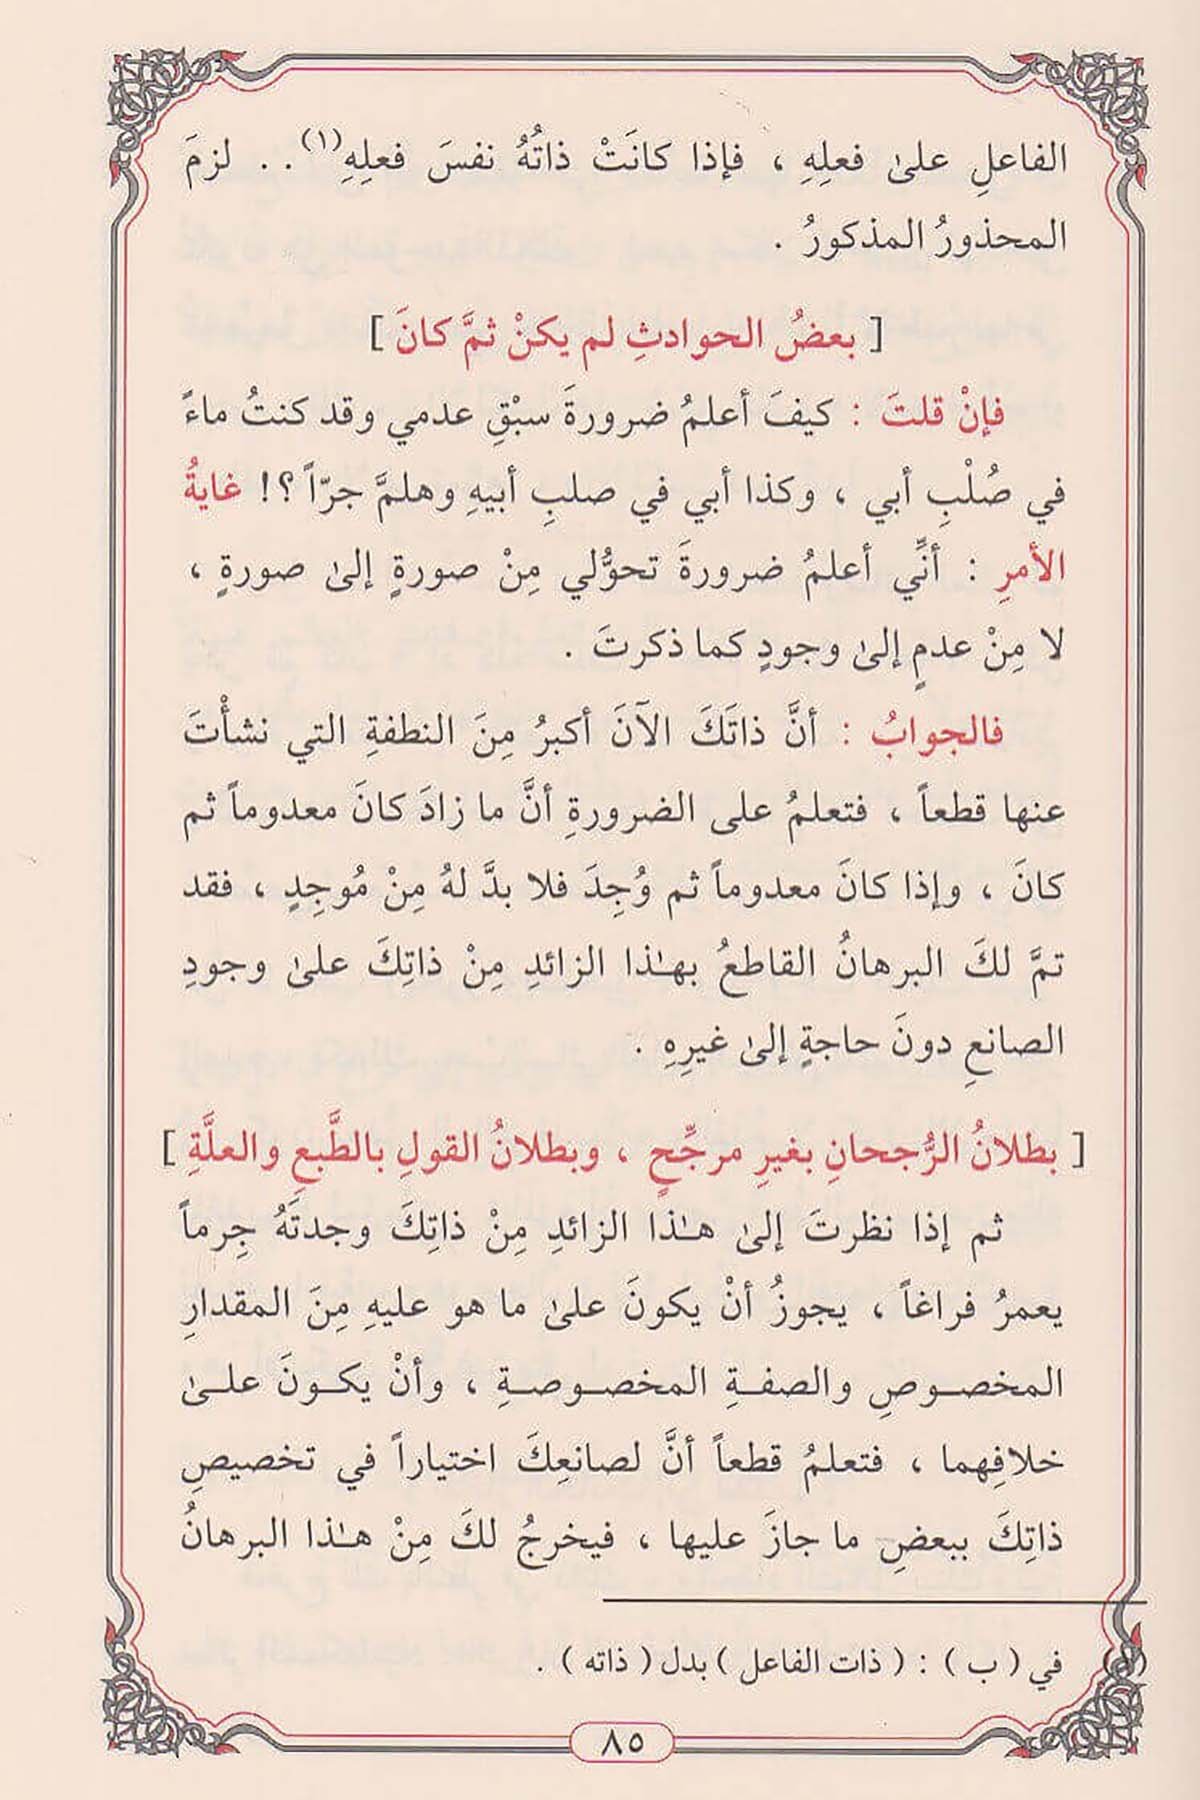 الفاعلِ علىٰ فعلِهِ ، فإذا كانَتْ ذاتُهُ نفسَ فعلِهِ(١) . . لزمَ
المحذورُ المذكورُ .
[ بعضُ الحوادثِ لم يكنْ ثمَّ كانَ ]
فإنْ قلتَ : كيفَ أعلمُ ضرورةَ سبْقِ عدمي وقد كنتُ ماءً
في صُلْبِ أبي ، وكذا أبي في صلبِ أبيهِ وهلمَّ جرّاً ؟! غايةُ
الأمرِ : أنِّي أعلمُ ضرورةَ تحوُّلي مِنْ صورةٍ إلىٰ صورةٍ ،
لا مِنْ عدمٍ إلىٰ وجودٍ كما ذكرتَ .
فالجوابُ : أنَّ ذاتَكَ الآنَ أكبرُ مِنَ النطفةِ التي نشأْتَ
عنها قطعاً ، فتعلمُ على الضرورةِ أنَّ ما زادَ كانَ معدوماً ثم
كانَ ، وإذا كانَ معدوماً ثم وُجِدَ فلا بدَّ لهُ مِنْ مُوجِدٍ ، فقد
تمَّ لكَ البرهانُ القاطعُ بهـٰذا الزائدِ مِنْ ذاتِكَ علىٰ وجودِ
الصانعِ دونَ حاجةٍ إلىٰ غيرِهِ .
[ بطلانُ الرُّجحانِ بغيرِ مرجِّحٍ ، وبطلانُ القولِ بالطَّبعِ والعلَّةِ ]
ثم إذا نظرتَ إلىٰ هـٰذا الزائدِ مِنْ ذاتِكَ وجدتَهُ جِرماً
يعمرُ فراغاً ، يجوزُ أنْ يكونَ علىٰ ما هو عليهِ مِنَ المقدارِ
المخصوصِ والصفةِ المخصوصةِ ، وأنْ يكونَ علىٰ
خلافِهما ، فتعلمُ قطعاً أنَّ لصانعِكَ اختياراً في تخصيصِ
ذاتِكَ ببعضِ ما جازَ عليها ، فيخرجُ لكَ مِنْ هـٰذا البرهانُ
(١) في ( ب ) : ( ذات الفاعل ) بدل ( ذاته ) .
٨٥